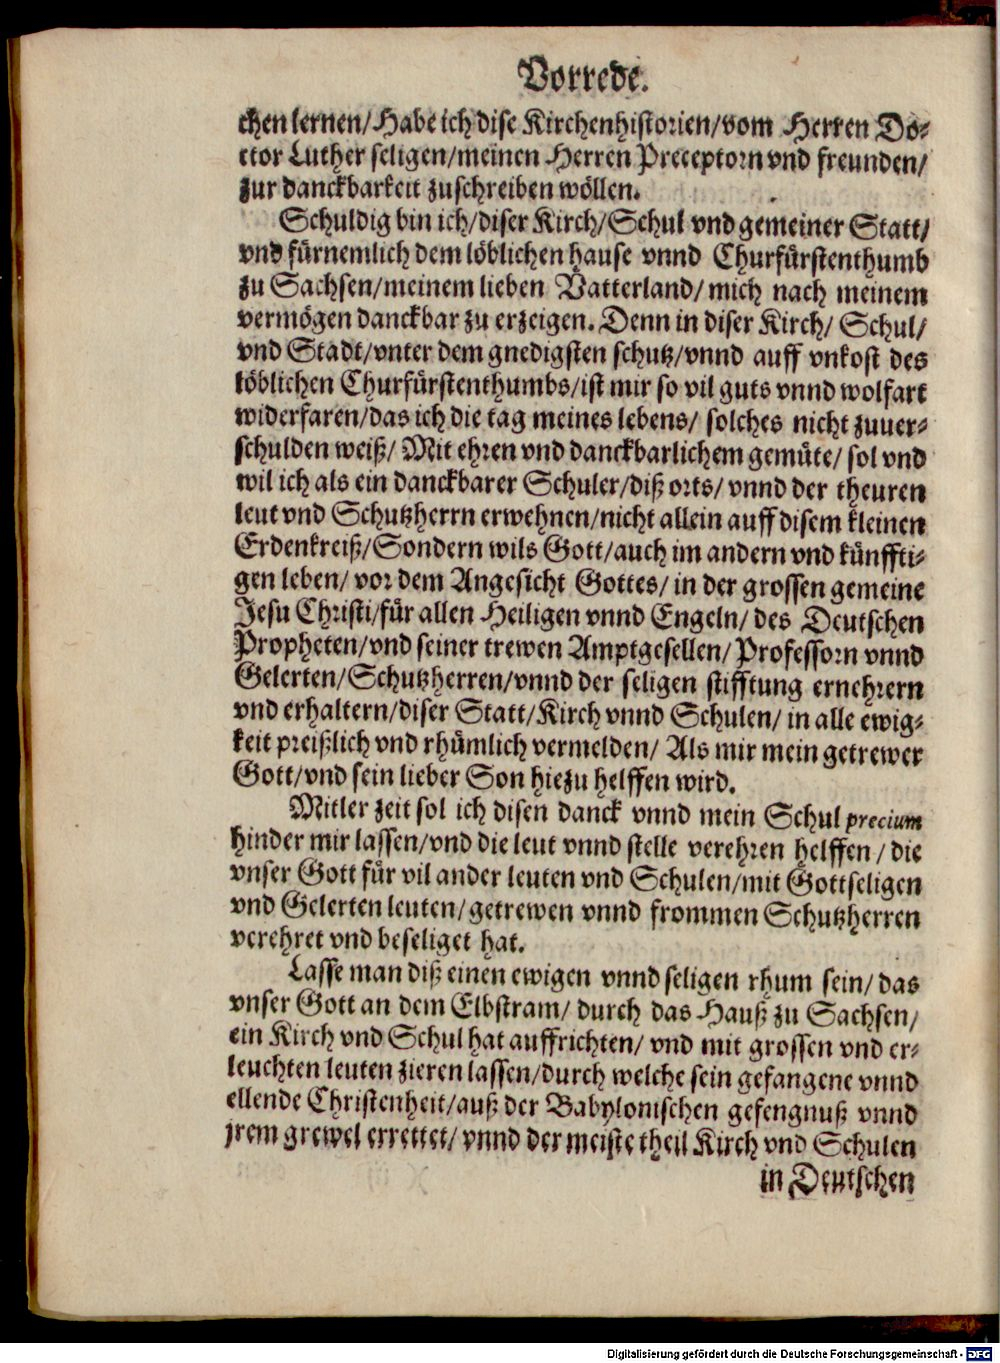 Vorrede.
chen lernen/Habe ich dise Kirchenhistorien/vom Herren Do-
ctor Luther seligen/meinen Herren Preceptorn vnd freunden/
zur danckbarkeit zuschreiben wöllen.
Schuldig bin ich/diser Kirch/Schul vnd gemeiner Statt/
vnd fürnemlich dem löblichen hause vnnd Churfürstenthumb
zu Sachsen/meinem lieben Vatterland/ mich nach meinem
vermögen danckbar zu erzeigen. Denn in diser Kirch/ Schul/
vnd Stadt/vnter dem gnedigsten schutz/vnnd auff vnkost des
löblichen Churfürstenthumbs/ist mir so vil guts vnnd wolfart
widerfaren/das ich die tag meines lebens/ solches nicht zuuer-
schulden weiß/ Mit ehren vnd danckbarlichem gemüte/ sol vnd
wil ich als ein danckbarer Schuler/diß orts/ vnnd der theuren
leut vnd Schutzherrn erwehnen/nicht allein auff disem kleinen
Erdenkreiß/Sondern wils Gott/auch im andern vnd künffti-
gen leben/ vor dem Angesicht Gottes/ in der grossen gemeine
Jesu Christi/für allen Heiligen vnnd Engeln/ des Deutschen
Propheten/vnd seiner trewen Amptgesellen/ Professorn vnnd
Gelerten/Schutzherren/vnnd der seligen stifftung ernehrern
vnd erhaltern/diser Statt/Kirch vnnd Schulen/ in alle ewig-
keit preißlich vnd rhümlich vermelden/ Als mir mein getrewer
Gott/vnd sein lieber Son hiezu helffen wird.
Mitler zeit sol ich disen danck vnnd mein Schul precium
hinder mir lassen/vnd die leut vnnd stelle verehren helffen/ die
vnser Gott für vil ander leuten vnd Schulen/mit Gottseligen
vnd Gelerten leuten/getrewen vnnd frommen Schutzherren
verehret vnd beseliget hat.
Lasse man diß einen ewigen vnnd seligen rhum sein/ das
vnser Gott an dem Elbstram/ durch das Hauß zu Sachsen/
ein Kirch vnd Schul hat auffrichten/ vnd mit grossen vnd er-
leuchten leuten zieren lassen/durch welche sein gefangene vnnd
ellende Christenheit/auß der Babylonischen gefengnuß vnnd
jrem grewel errettet/ vnnd der meiste theil Kirch vnd Schulen
in Deutschen
Digitalisierung gefördert durch die Deutsche Forschungsgemeinschaft - DFG